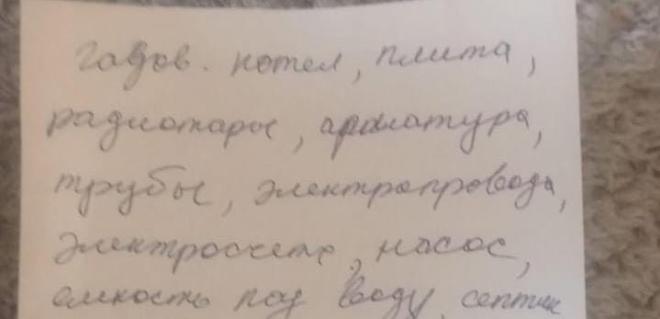 газов. котел, плита,
радиаторы, арматура,
трубы, электропровода,
электросчетч, насос,
емкость под воду, септик